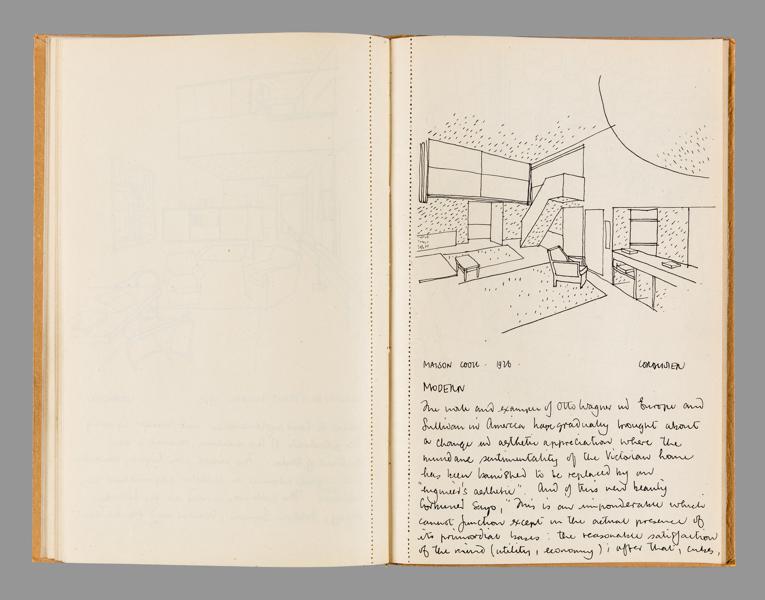 MAISON COOK · 1926 · CORBUSIER
MODERN
The work and example of Otto Wagner in Europe and
Sullivan in America have gradually brought about
a change in aesthetic appreciation where the
mundane sentimentality of the Victorian home
has been banished to be replaced by an
"engineer's aesthetic" And of this new beauty
says, "This is an imponderable which
cannot function except in the actual presence of
its primordial bases : the reasonable satisfaction
of the mind (utility, economy) ; after that, cubes,